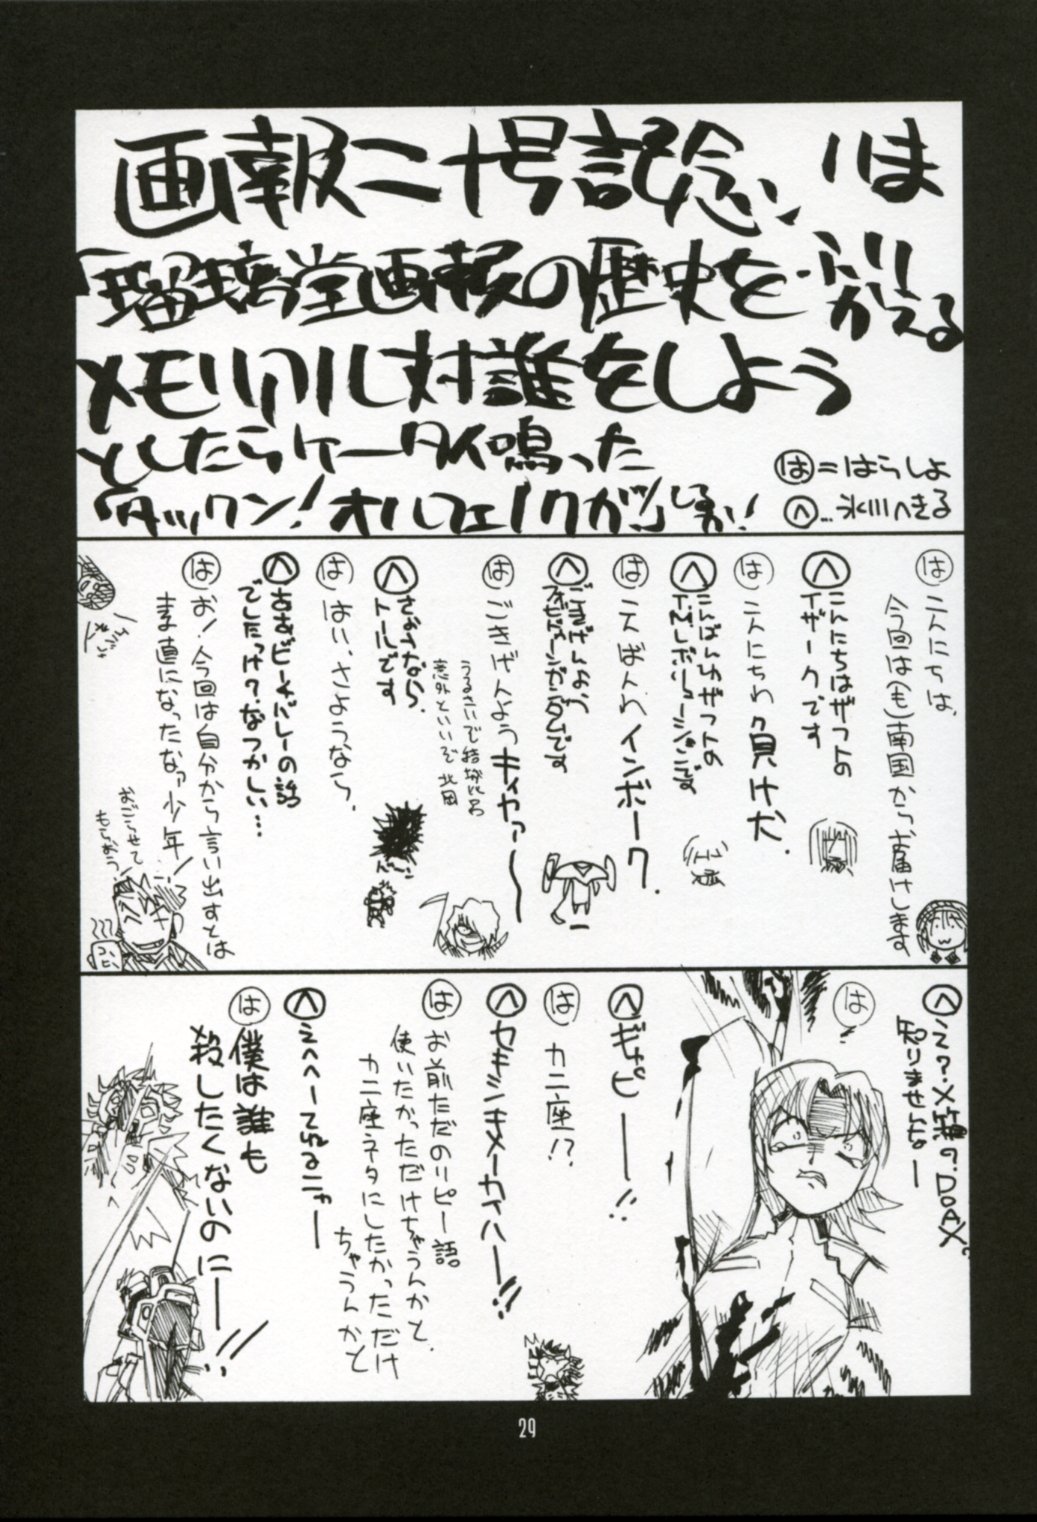 画報二十号記念、いは
「瑠璃堂画報の歴史をふりかえる
メモリアル対誰をしよう
としたらケータイ鳴った
タックン!オルフェノクが
は=はらしよ
へ…氷川へきる
は こんにちは、
今回は(も)南国からお届けします
へ こんにちはザフトの
イザークです
は こんにちわ負け犬.
は こんばんわインボーク.
は ごきげんようキャァァ〜
うるさいで結構
意外といいで 北岡
へ さようなら、
トールです
は はい、さようなら、
へ ああビーチバレーの話
でしたっけ?なつかしい…
は お!今回は自分から言い出すとは
ま直になったなァ少年!
おごらせて
もらおう
へ え?×箱のDOAX?
知りませんよー
は …
へ ギャピーー!!
は カニ座!?
へ セキシンキメーカイハー!!
は お前ただのリピー語
使いたかっただけちゃうんかと.
カニ座ネタにしたかっただけ
ちゃうんかと
へ えへへーてるニャー
は 僕は誰も
殺したくないのにーー!!
29